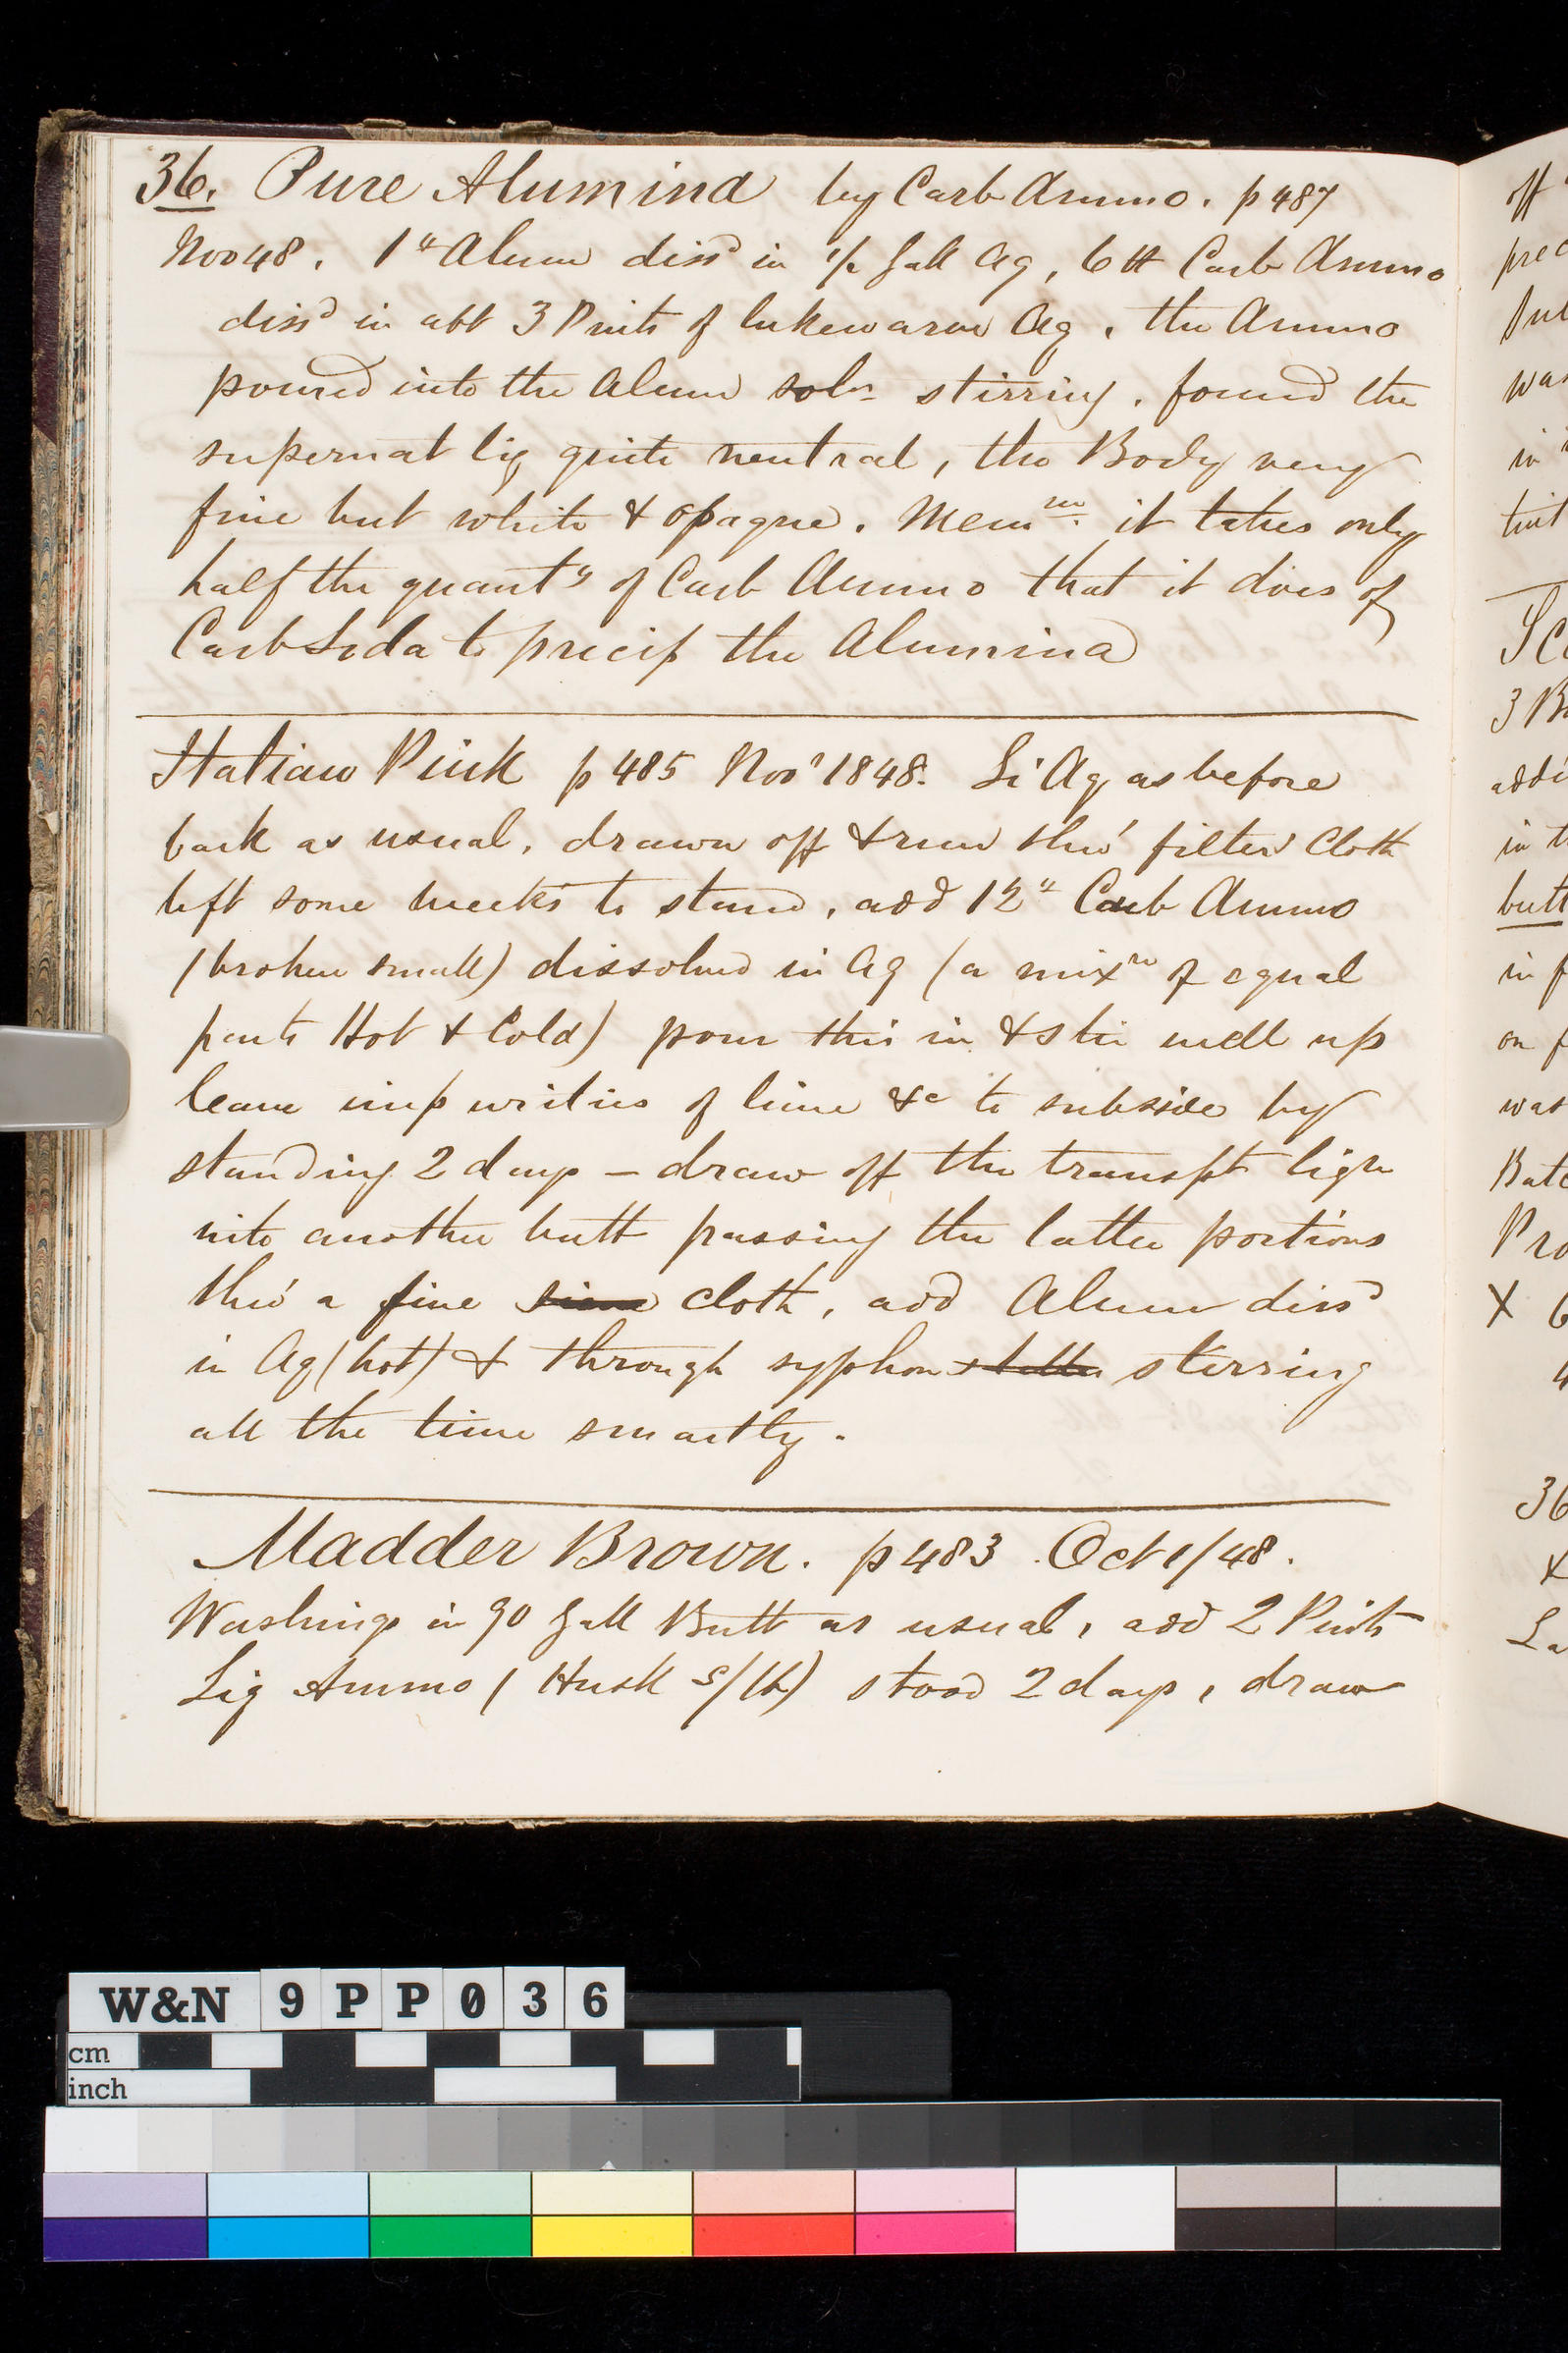 36. Pure Alumina by Carb Ammo. p 487
Nov 48. 1 " Alum diss^d in 1/2 Gall Aq, 6 tt Carb Ammo
diss^d in abt 3 Pints of lukewarm Aq, the Ammo
poured into the Alum sol^n stirring. found the
supernat liq quite neutral, the Body very
fine but white & opaque. Mem^m it takes only
half the quant^y of Carb Ammo that it does of
Carb Soda to precip the Alumina
Italian Pink p 485 Nov^r 1848. Li Aq as before
bark as usual, drawn off & run thro' filter cloth
left some weeks to stand, add 12 " Carb Ammo
(broken small) dissolved in Aq (a mix^re of equal
parts Hot & Cold) pour this in & stir well up
leave impurities of lime &c to subside by
standing 2 days – draw off the transpt liqr
into another butt passing the latter portions
thro' a fine cloth, add Alum diss^d
in Aq (hot) & through syphon stirring
all the time smartly.
Madder Brown. p 483. Oct 1/48.
Washings in 90 Gall Butt as usual, add 2 Pints
Liq Ammo (Husk s/lb) stood 2 days, draw
off
prec
was
in
tint
3 B
addi
in t
butt
in f
on f
was
Batc
Pro
X 6
36
X
La
W&N 9PP036
cm
inch